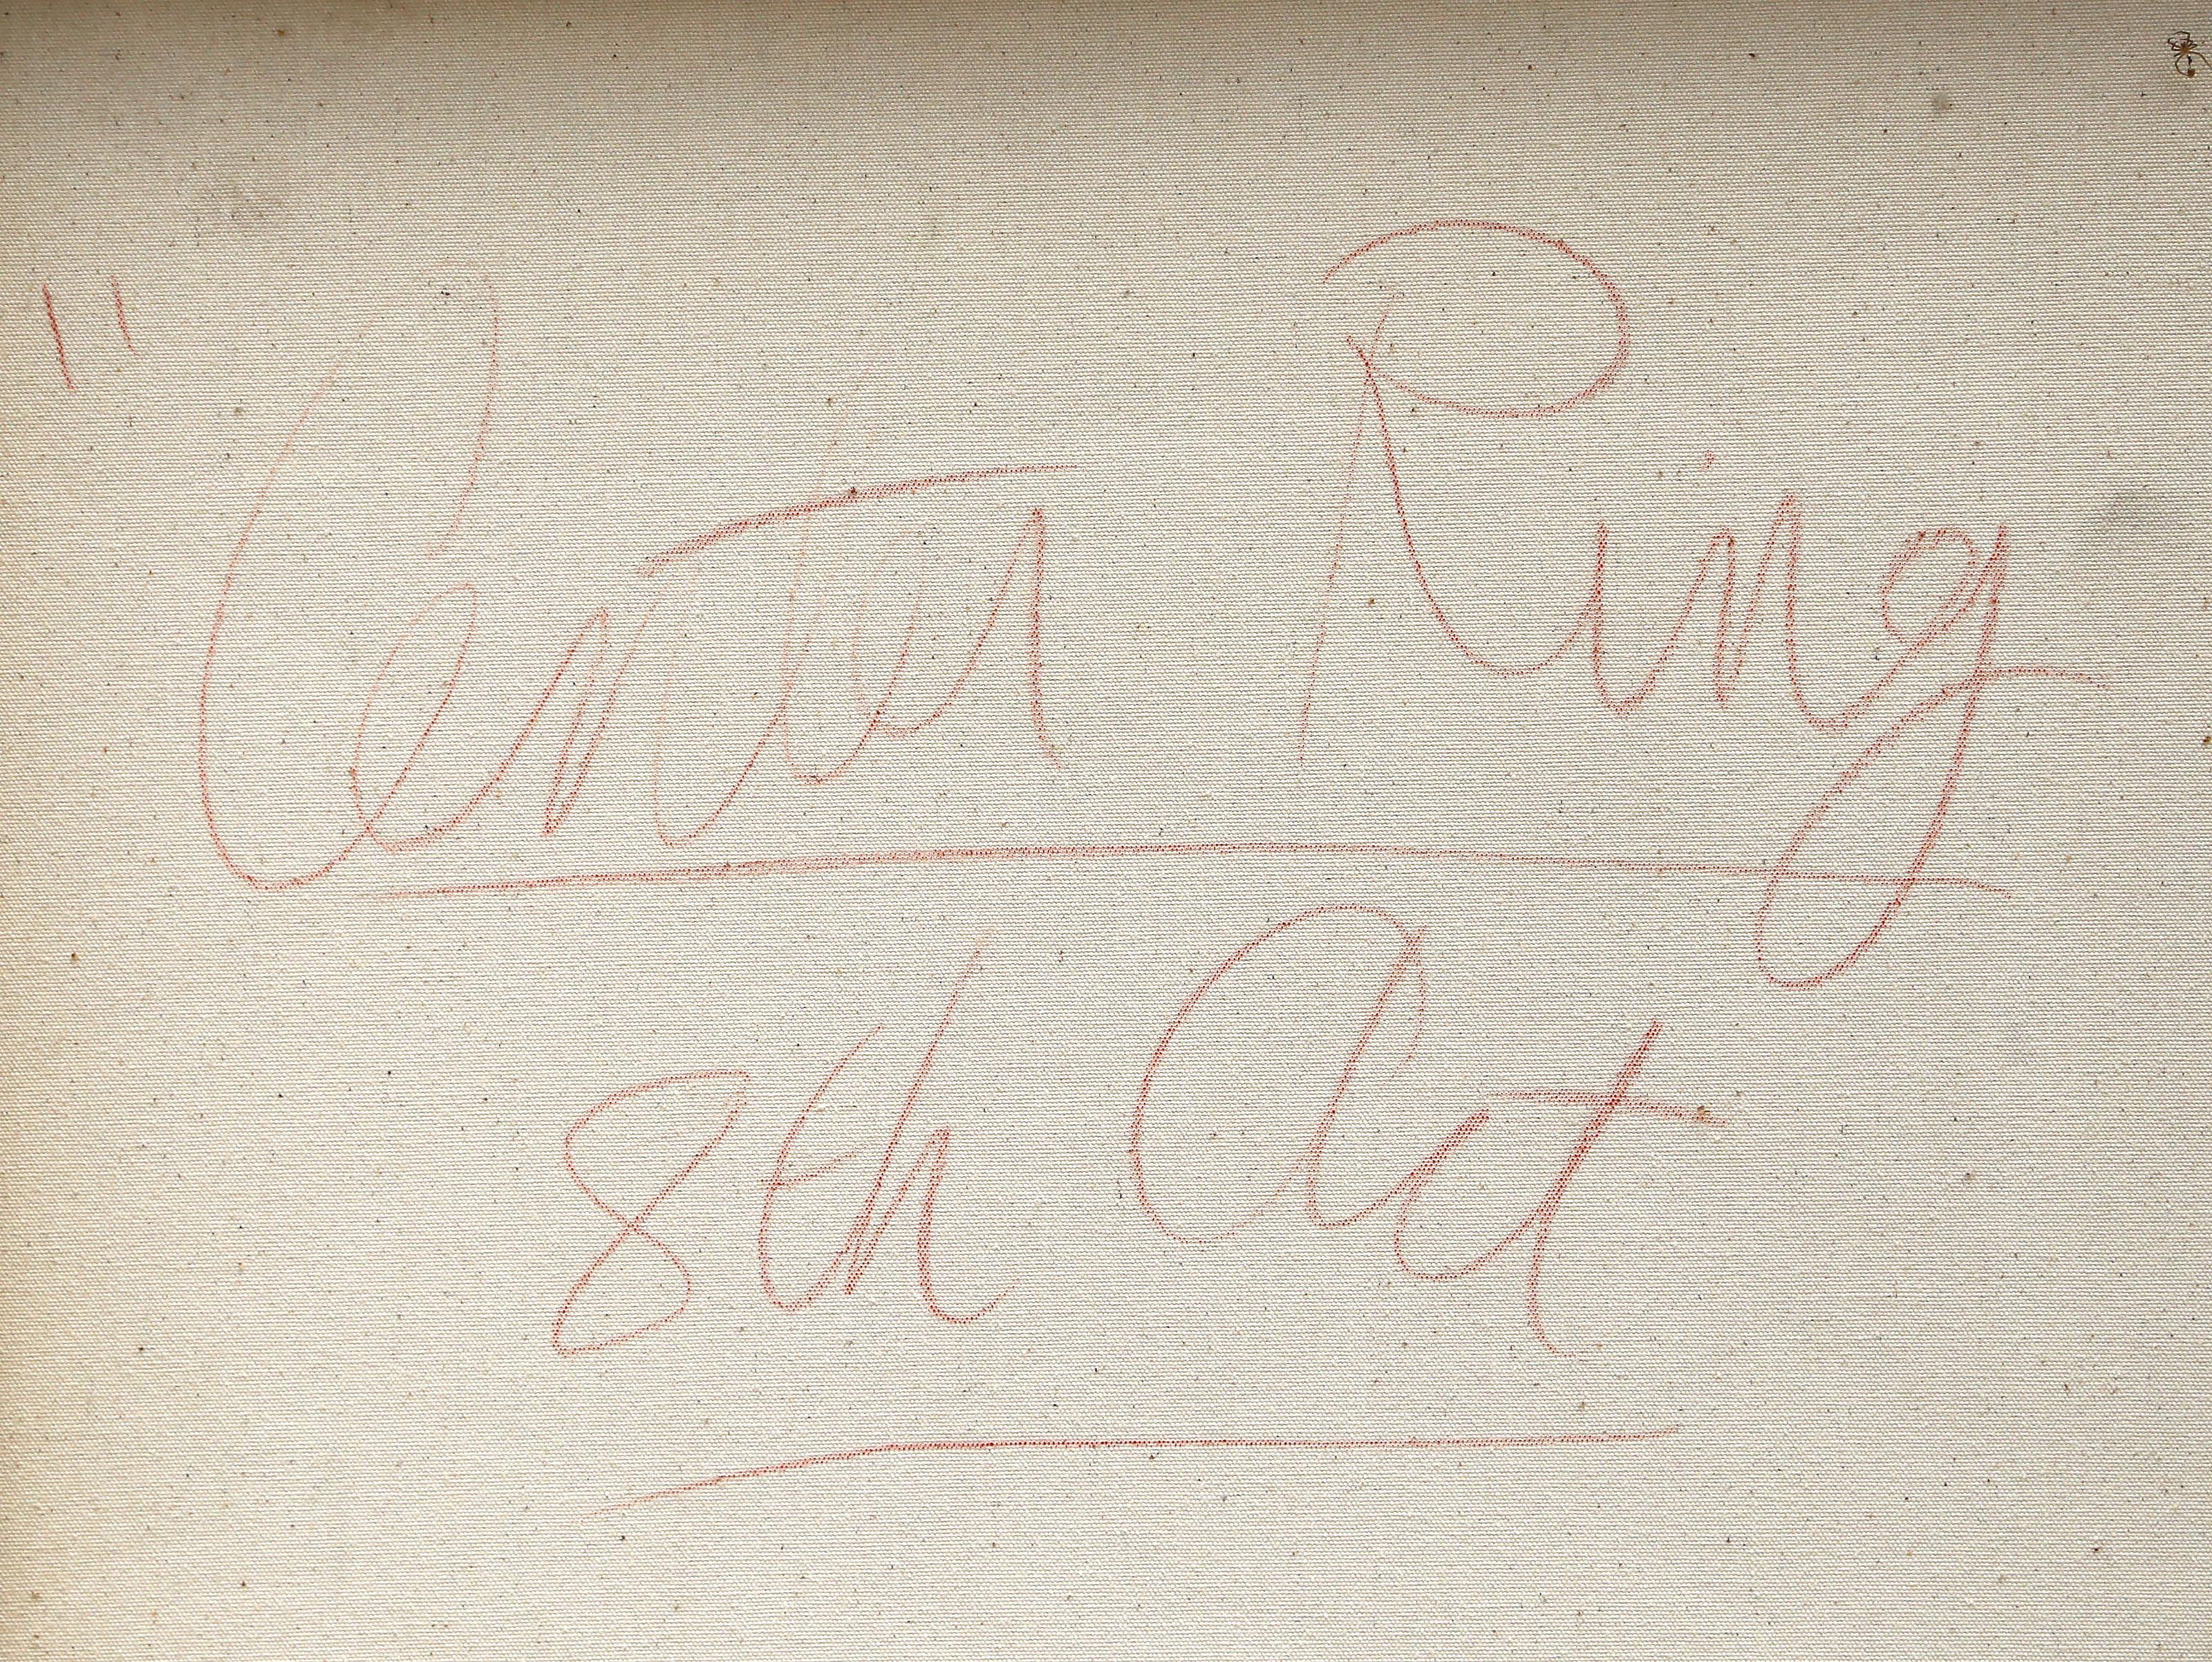 "Center Ring
8th Act